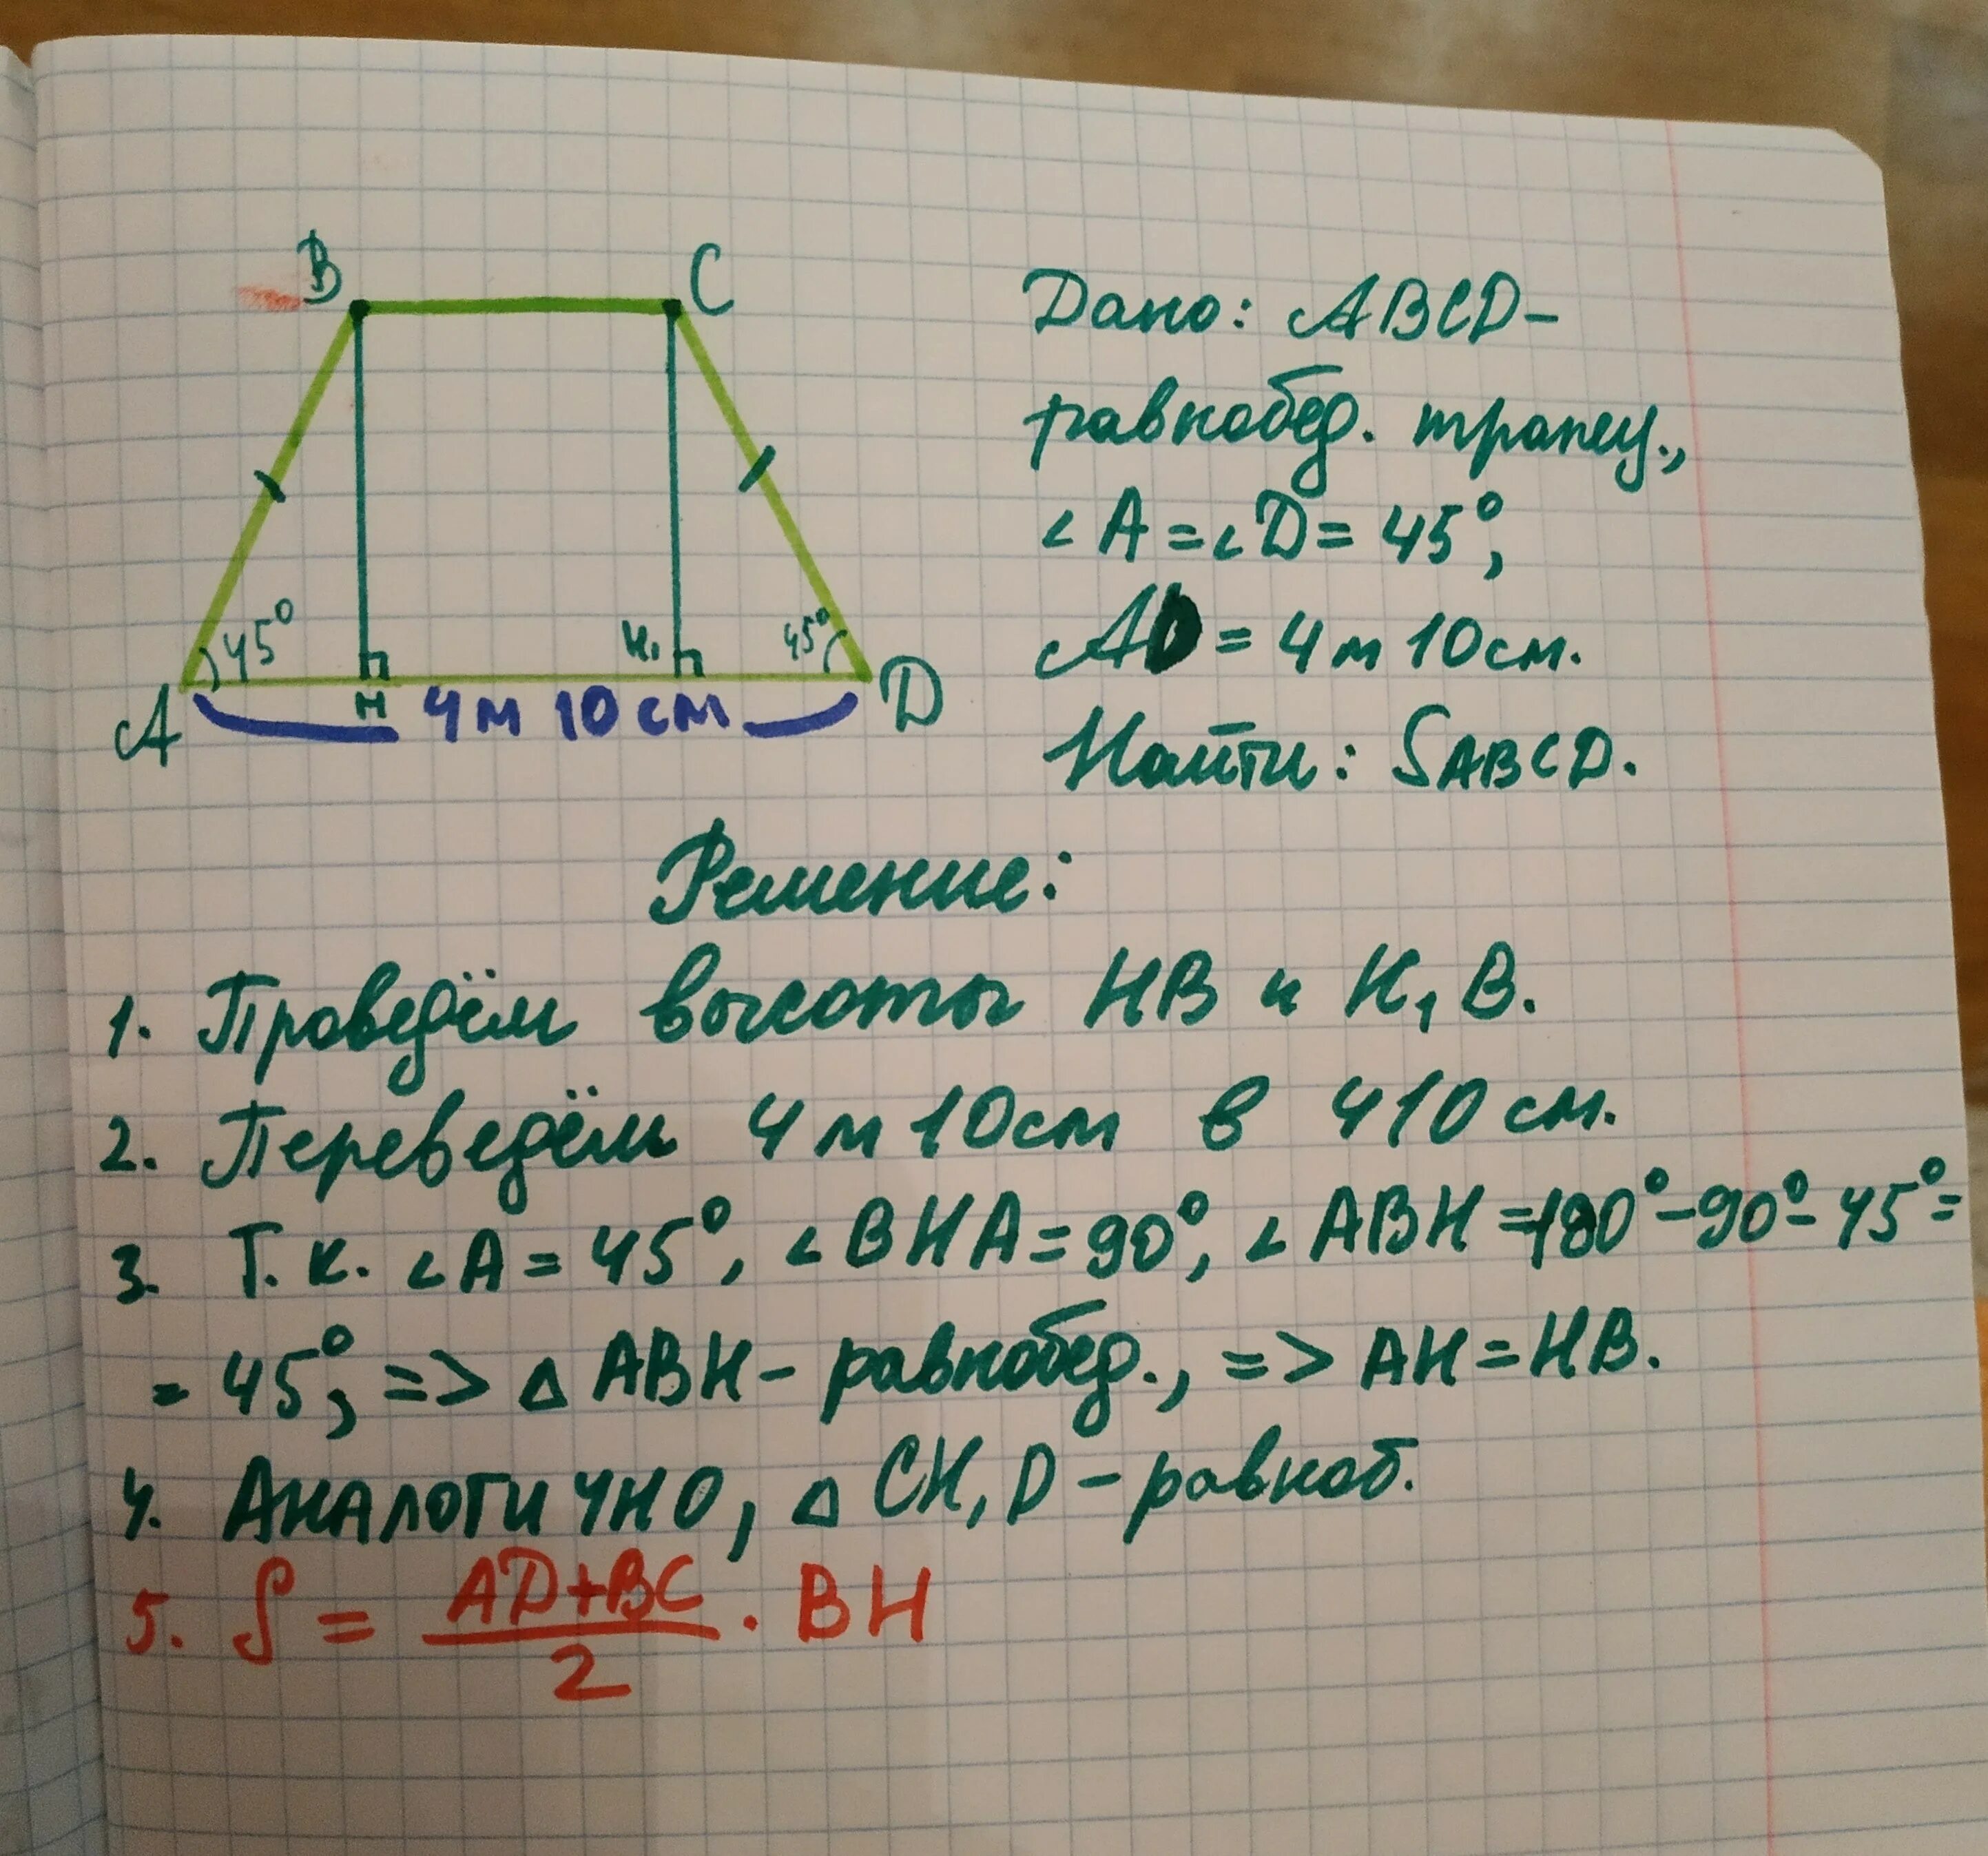 B
C
45°
H₁
45°
A
H
4м 10см
D
Дано: ABCD-
равнобед. трапец.,
∠A=∠D=45°,
AD = 4м 10см.
Найти: SABCD.
Решение:
1. Проведём высоты HB и H₁B.
2. Переведём 4м 10см в 410 см.
3. Т.к. ∠A=45°, ∠BHA=90°, ∠ABH=180°-90°-45°=
=45°, => △ABH-равнобед., => AH=HB.
4. Аналогично, △CH₁D-равноб.
5. S = AD+BC/2 · BH